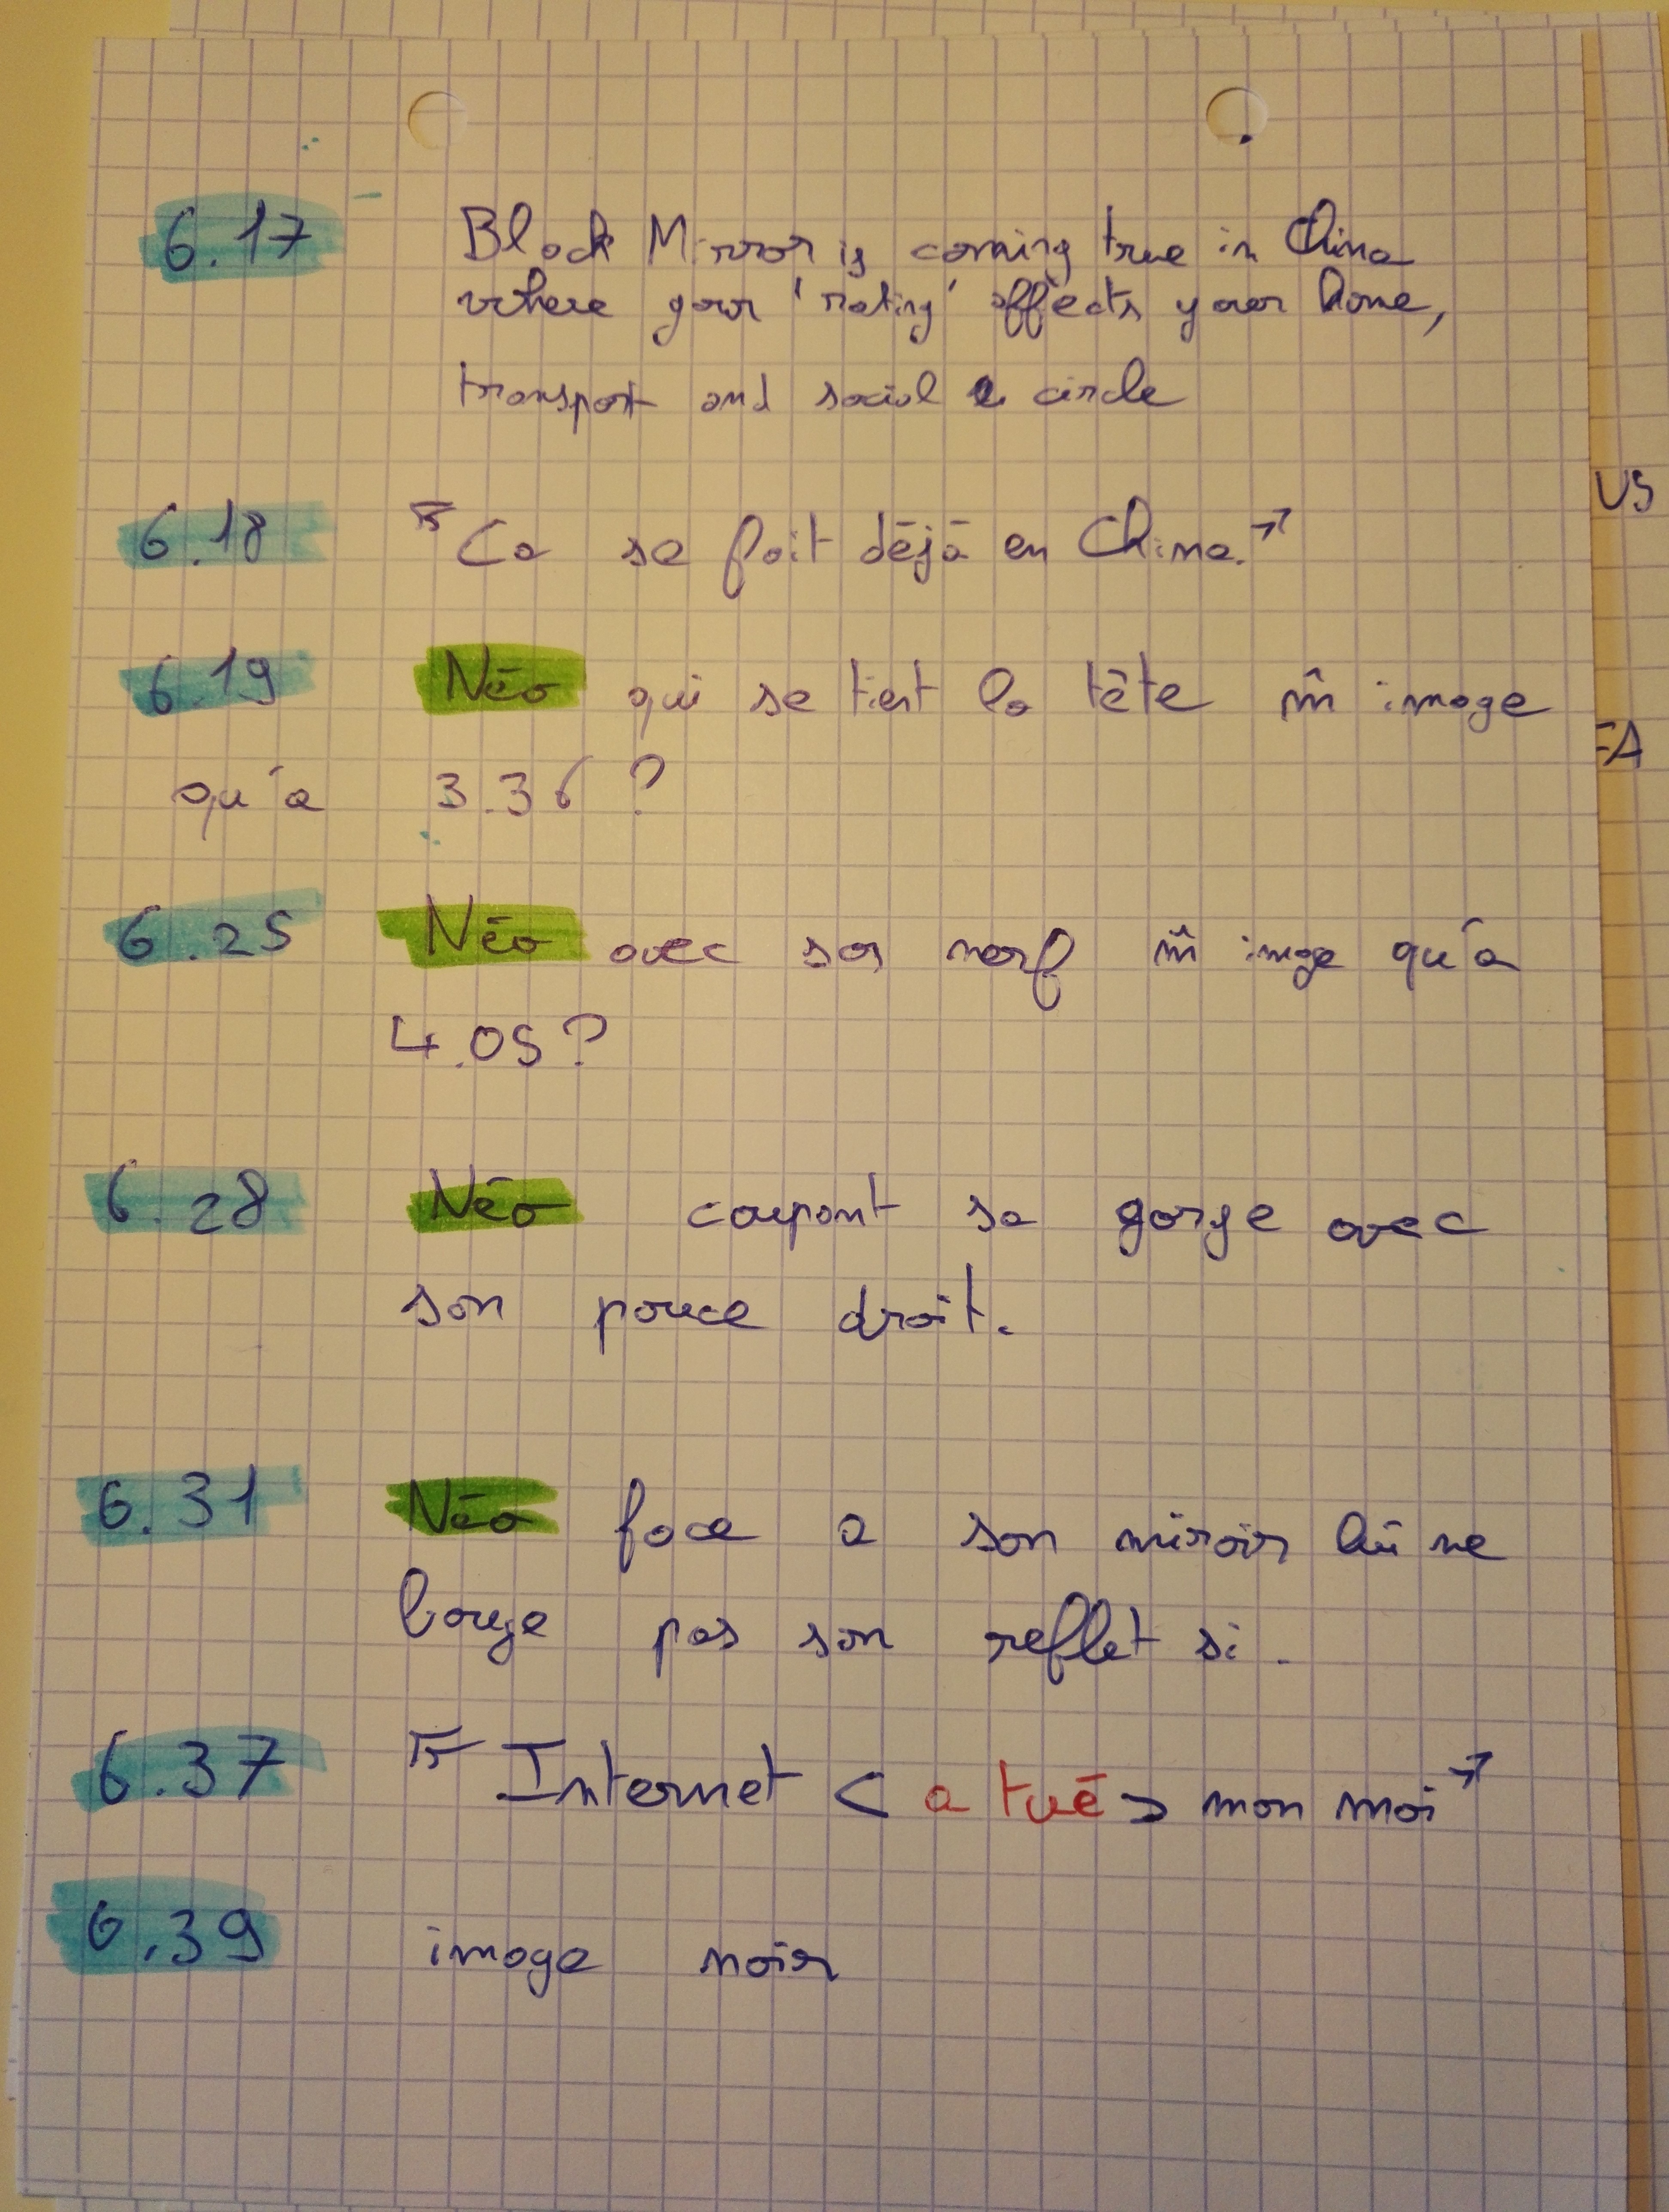 6.17 Black Mirror is coming true in China
where your 'rating' affects your home,
transport and social circle
US
6.18 Ca se fait déjà en Chine.
6.19 Néo qui se tient la tête m̂ image
qu'a 3.36 ?
6.25 Néo avec son nerf m̂ image qu'a
4.05 ?
6.28 Néo coupant sa gorge avec
son pouce droit.
6.31 Néo face a son miroir lui ne
bouge pas son reflet si.
6.37 Internet < a tué > mon moi
6.39 image noir